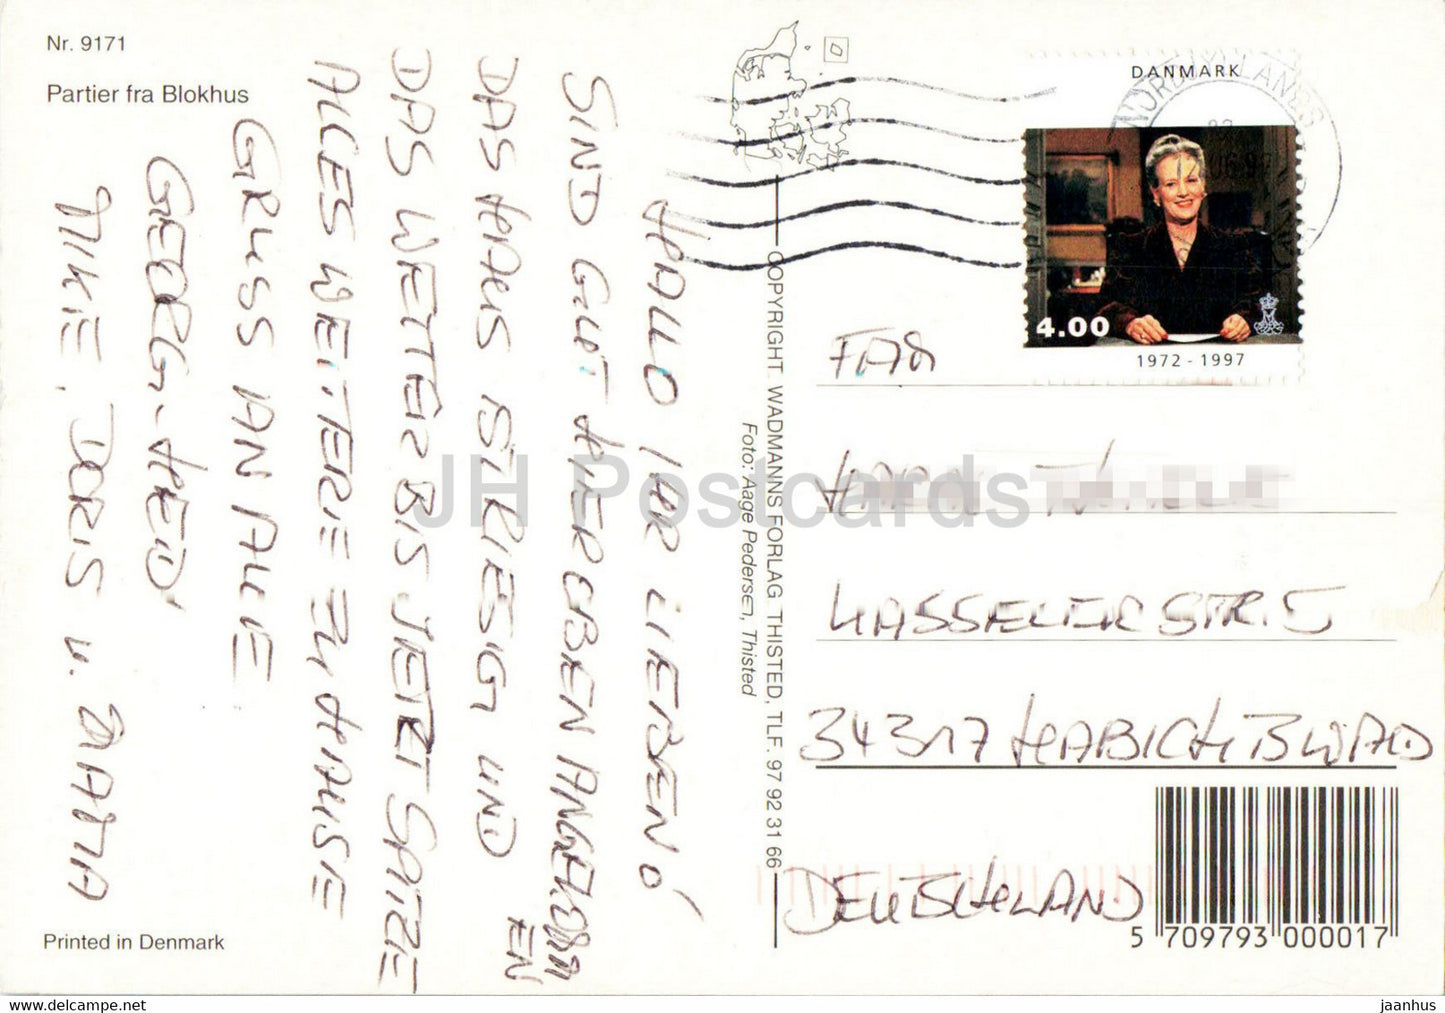 Nr. 9171
Partier fra Blokhus
HALLO IHR LIEBEN!
SIND GUT HIER OBEN ANGEKOMM
EN
DAS HAUS IST RIESIG UND
DAS WETTER BIS JETZT SPITZE
ALLES WEITERE ZU HAUSE
GRUSS AN ALLE
GEORG-HEID
MIKE, DORIS U.
Printed in Denmark
COPYRIGHT. WADMANNS FORLAG. THISTED, TLF. 97 92 31 66
Foto: Aage Pedersen, Thisted
DANMARK
NORDJYLLANDS
4.00
1972 - 1997
FAM
KASSELER STR. 5
34317 HABICHTSWALD
DEUTSCHLAND
5 709793 000017
JH Postcards
www.delcampe.net
jaanhus